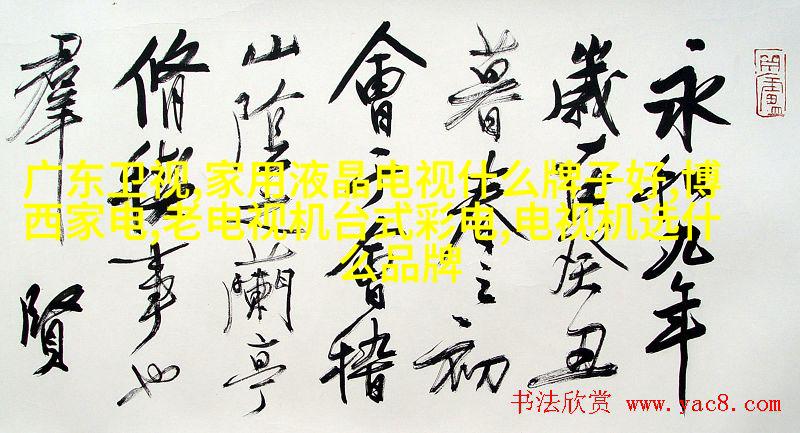 永和九年
歲在癸丑
暮春之初
會于會稽
山陰之蘭亭
脩禊事也
羣賢
广东卫视,家用液晶电视什么牌子好,博
西家电,老电视机台式彩电,电视机选什
么品牌
书法欣赏 www.yac8.com